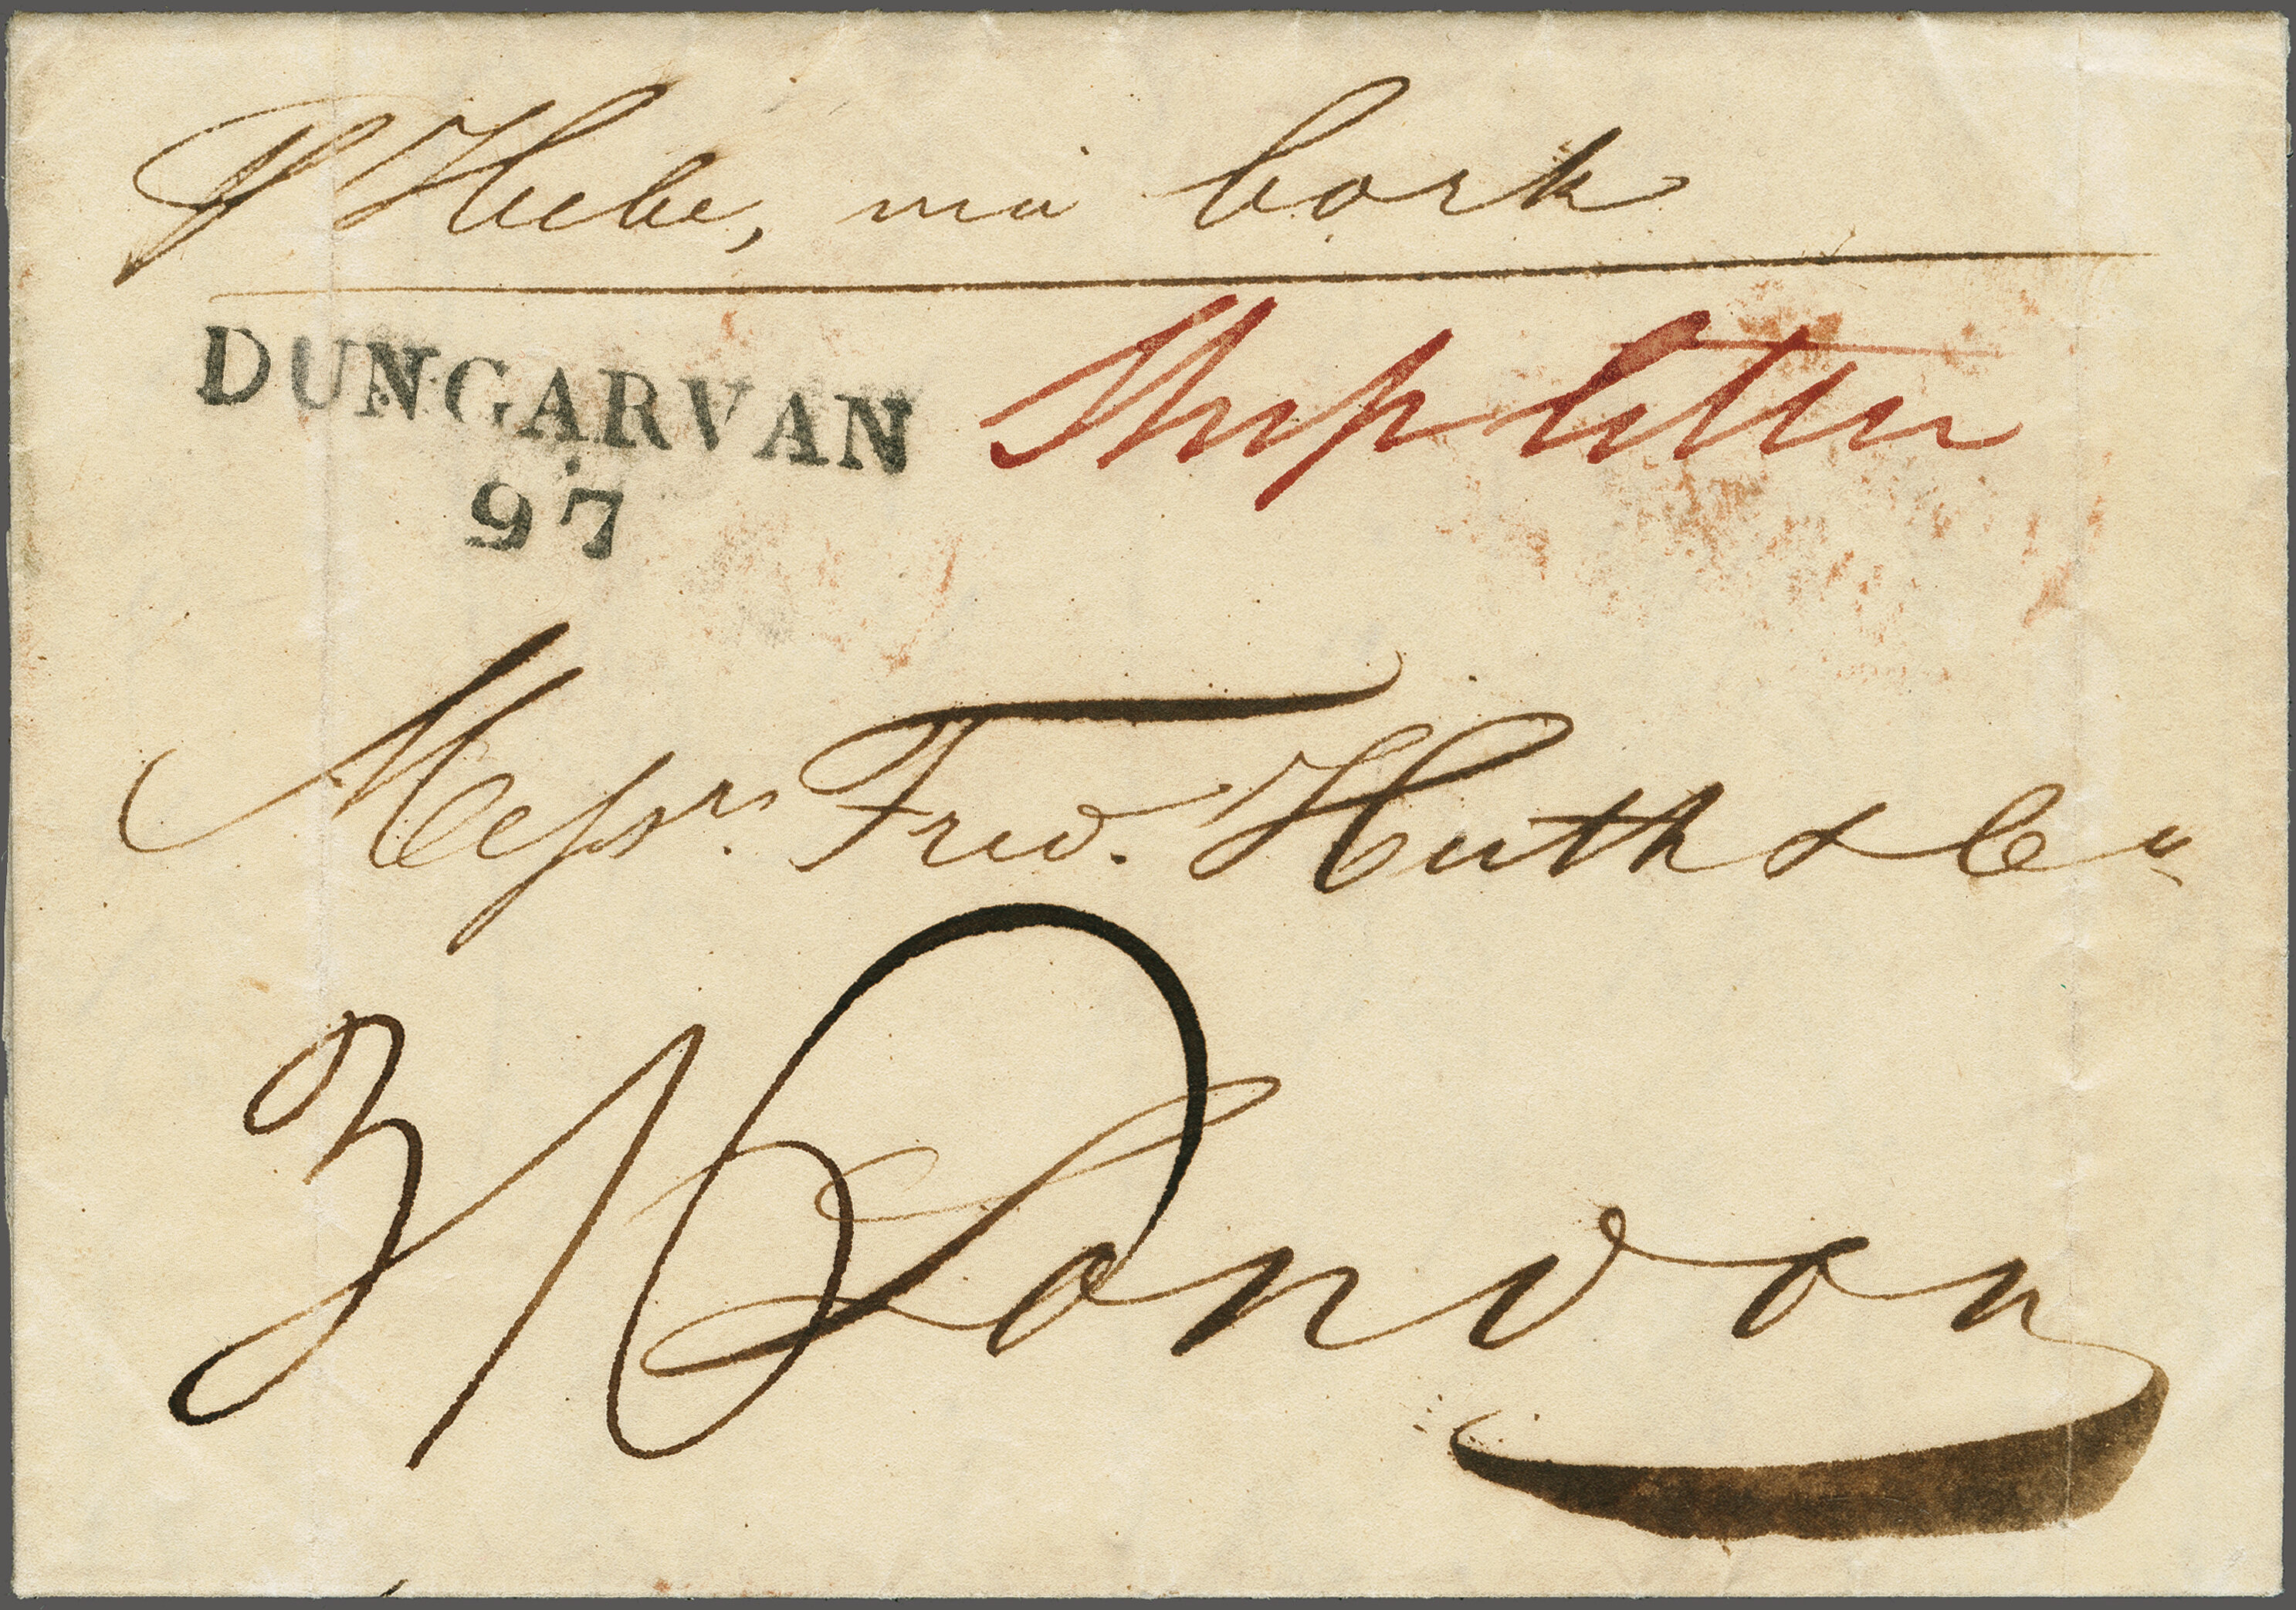 p Hebe, via Cork
Ship Letter
DUNGARVAN
97
Messrs. Fred. Huth & Co
London